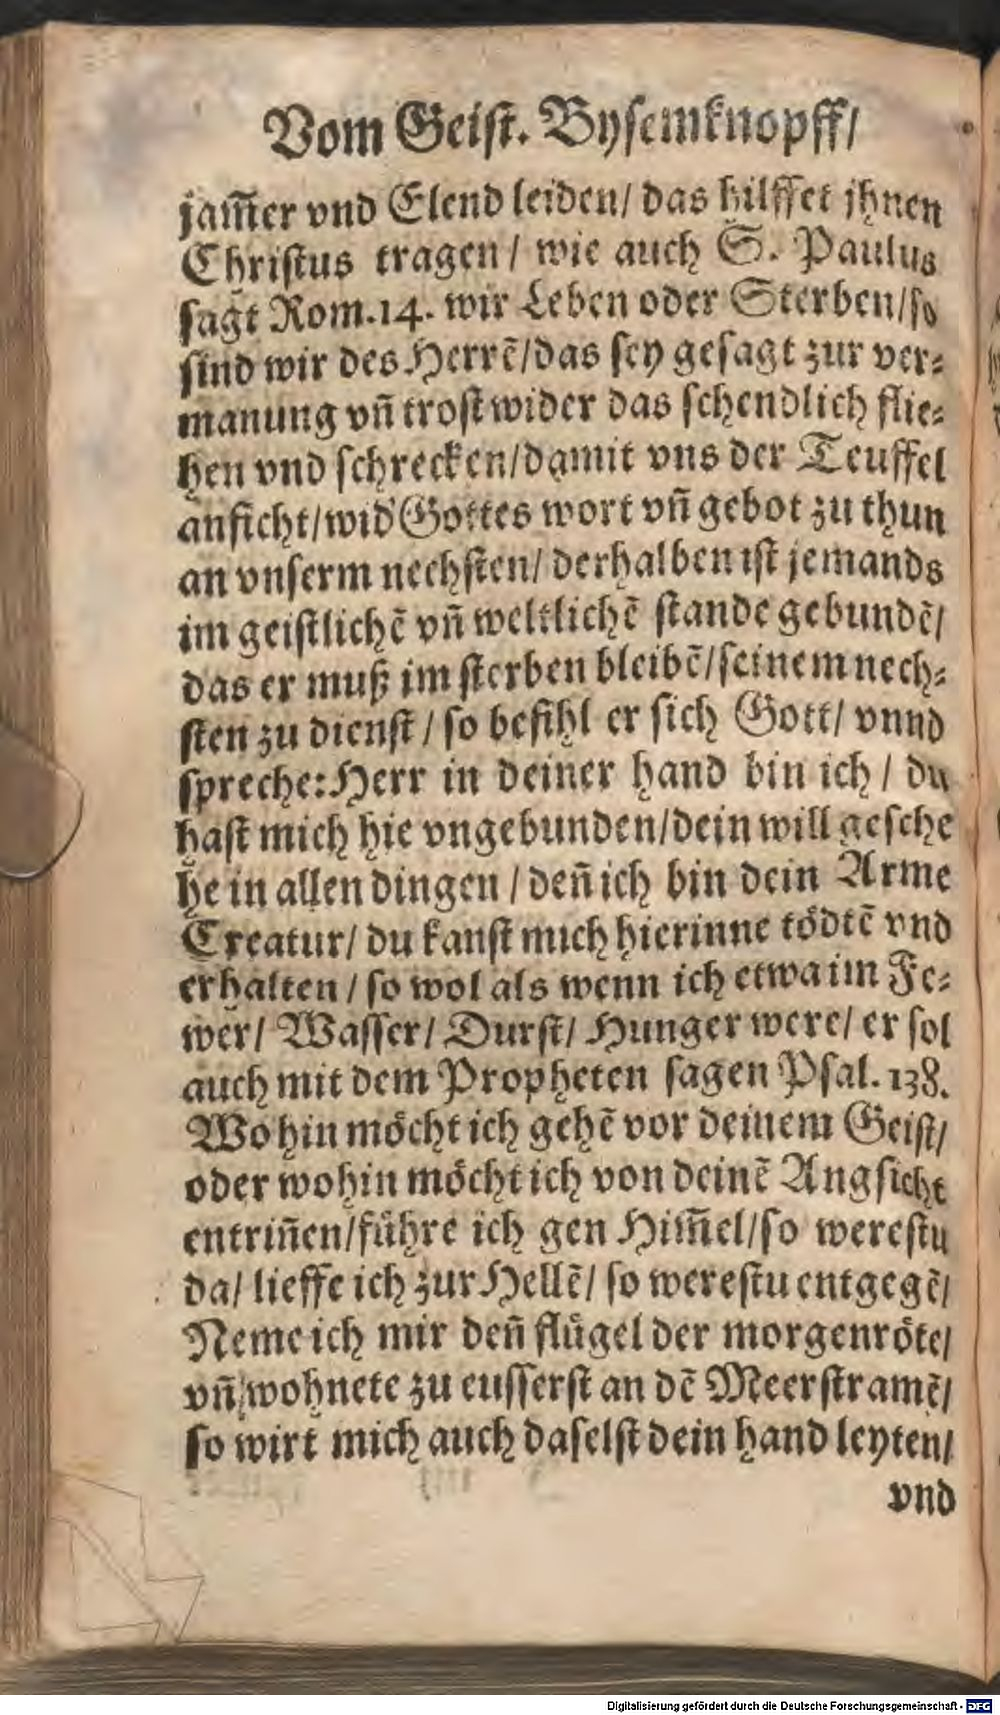 Vom Geist. Bysemknopff/
jam̃er vnd Elend leiden/ das hilffet jhnen
Christus tragen / wie auch S. Paulus
sagt Rom. 14. wir Leben oder Sterben/so
sind wir des Herrẽ/das sey gesagt zur ver⸗
manung vñ trost wider das schendlich flie⸗
hen vnd schrecken/damit vns der Teuffel
anficht/wid' Gottes wort vñ gebot zu thun
an vnserm nechsten/ derhalben ist jemands
im geistlichẽ vñ weltlichẽ stande gebundẽ/
das er muß im sterben bleibẽ/seinem nech⸗
sten zu dienst / so befihl er sich Gott/ vnnd
spreche: Herr in deiner hand bin ich / du
hast mich hie vngebunden/dein will gesche
he in allen dingen / deñ ich bin dein Arme
Creatur/ du kanst mich hierinne tödtẽ vnd
erhalten / so wol als wenn ich etwa im Fe⸗
wer/ Wasser/ Durst/ Hunger were/ er sol
auch mit dem Propheten sagen Psal. 138.
Wo hin möcht ich gehẽ vor deinem Geist/
oder wohin möcht ich von deinẽ Angsicht
entriñen/führe ich gen Him̃el/so werestu
da/ lieffe ich zur Hellẽ/ so werestu entgegẽ/
Neme ich mir deñ flügel der morgenröte/
vñ wohnete zu eusserst an dẽ Meer stramẽ/
so wirt mich auch daselst dein hand leyten/
vnd
Digitalisierung gefördert durch die Deutsche Forschungsgemeinschaft - DFG